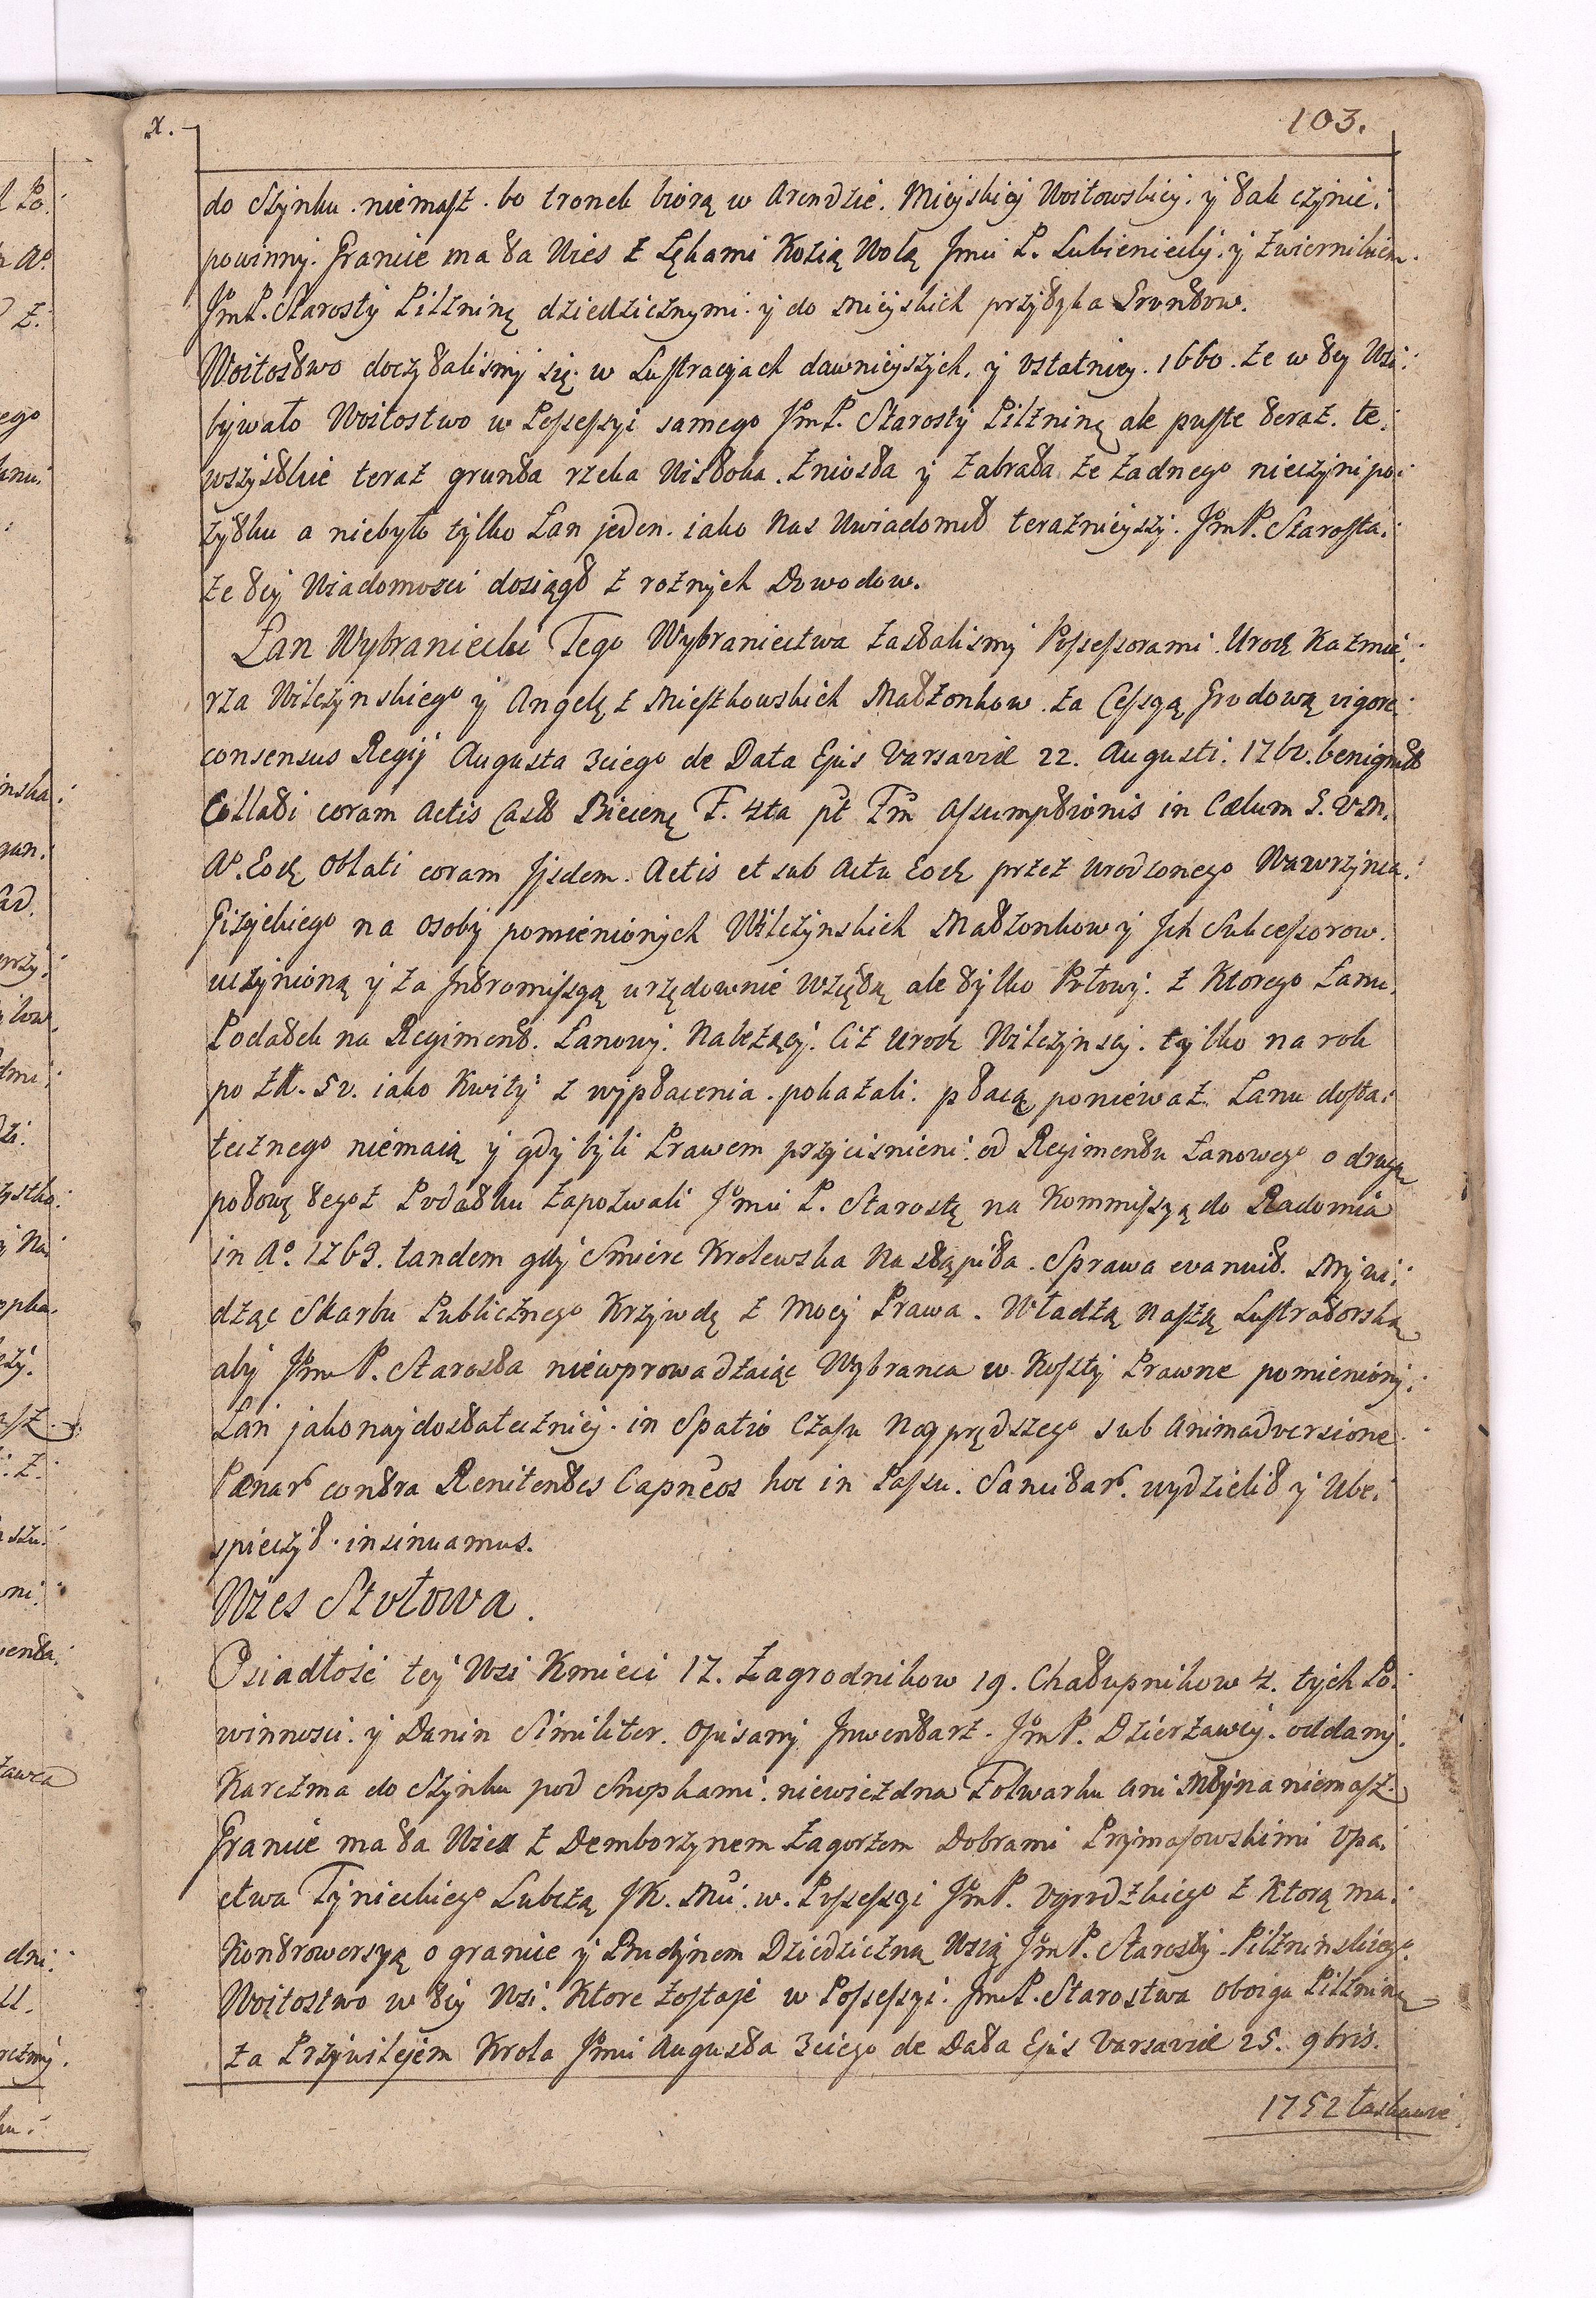 x.
103.
do Szynku niemasz bo tronek biorą w Arendzie Mieyskiey Woitowskiey y tak czynić
powinny. Granice ma ta Wies z Łękami Kozią Wolą Jmci P. Lubienieckiy y Zwiernikiem
JmP. Starosty Pilzninę dziedzicznymi y do Mieyskich przytyka Gruntow.
Woitostwo doczytalismy się w Lustracyach dawnieyszych, y Ostatniey 1660. ze w tey Wsi
bywało Woitostwo w Possessyi samego JmP. Starosty Pilzninę ale puste teraz. te
wszystkie teraz grunta rzeka Wisłoka zniosła y zabrała ze zadnego nieczyni po:
zytku a niebyło tylko Łan jeden iako Nas Uwiadomił teraznieyszy JmP. Starosta
ze tey Wiadomosci dosiągł z roznych Dowodow.
Łan Wybraniecki Tego Wybraniectwa zastalismy Possessorami Urodz Kazmie:
rza Wilczynskiego y Angelę z Mieszkowskich Małzonkow za Cessyą Grodową vigore
consensus Regij Augusta 3ciego de Data Ejus Varsaviæ 22. Augusti. 1760. benignæ
Collati coram Actis Castr Biecenę F. 4ta pt Fm Assumptionis in Cælum S. V.M.
Aº. Eodę Oblati coram Ijsdem Actis et sub Actu Eodę przez Urodzonego Wawrzynca
Gizyckiego na Osoby pomienionych Wilczynskich Małzonkow y Jch Sukcessorow
uczynioną y za Jntromissyą urzędownie wziętą ale tylko Połowy z Ktorego Łanu
Podatek na Regiment Łanowy Nalezący Ciz Urodz Wilczynscy tylko na rok
po Zll. 50. iako Kwity z wypłacenia pokazali płacą poniewaz Łanu dosta:
tecznego niemaią y gdy byli Prawem przycisnieni od Regimentu Łanowego o drugą
połowę tegoz Podatku zapozwali Jmci P. Starostę na Kommissyą do Radomia
in Aº. 1763. tandem gdy Smierc Krolewska Nastąpiła Sprawa evanuit. My wi:
dząc Skarbu Publicznego Krzywdę z Mocy Prawa Władzą Naszą Lustratorską
aby JmP. Starosta niewprowadzaiąc Wybranca w Koszty Prawne pomieniony
Łan jako naydostateczniey in Spatio Czasu Nayprędszego sub Animadversione
Pænar contra Renitentes Capneos hoc in Passu Sancitar. wydzielił y Ube:
spieczył insinuamus.
Wies Stołowa.
Osiadłość tey Wsi Kmieci 17. Zagrodnikow 19. Chałupnikow 4. tych Po:
winnosci y Danin Similiter Opisany Jnwentarz JmP. Dzierzawcy oddany
Karczma do Szynku pod Snopkami niewiezdna Folwarku ani Młyna niemasz
Granice ma ta Wies z Demborzynem Zagorzem Dobrami Prymasowskimi Opa:
ctwa Tynieckiego Lubczą JK. Mci w Possessyi JmP. Ogrodzkiego z Ktorą ma
Kontrowersyą o granice y Bruchnem Dziedziczną Wsią JmP. Starosty Pilzninskiego
Woitostwo w tey Wsi Ktore zostaje w Possessyi JmP. Starostwa oboiga Pilzninę
za Przywilejem Krola Jmci Augusta 3ciego de Data Ejus Varsaviæ 25. 9bris.
1752 łaskawie